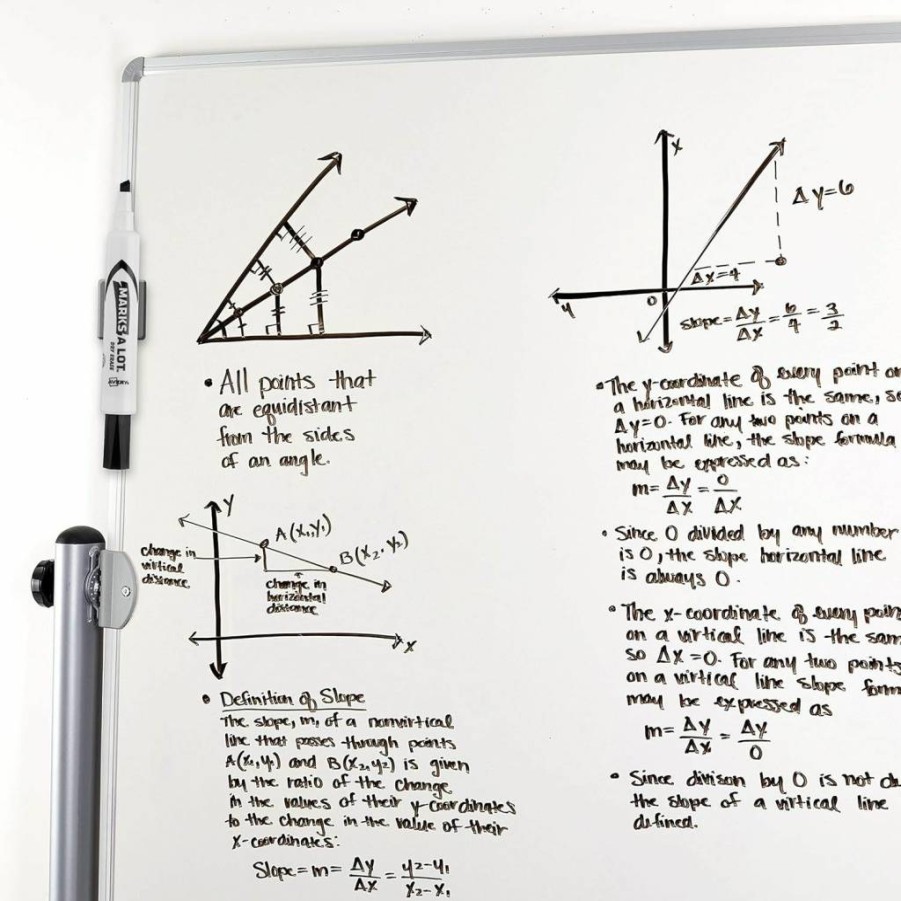 MARKS A LOT.
DRY ERASE
• All points that
are equidistant
from the sides
of an angle.
Y
A(x₁,y₁)
B(x₂,y₂)
change in
virtical
distance
change in
horizontal
distance
X
• Definition of Slope
The slope, m, of a nonvirtical
line that passes through points
A(x₁,y₁) and B(x₂,y₂) is given
by the ratio of the change
in the values of their y-coordinates
to the change in the value of their
x-coordinates:
Slope = m = Δy/Δx = y₂-y₁/x₂-x₁
X
Δy=6
Δx=4
0
y
slope = Δy/Δx = 6/4 = 3/2
• The y-coordinate of every point on
a horizontal line is the same, so
Δy=0. For any two points on a
horizontal line, the slope formula
may be expressed as:
m = Δy/Δx = 0/Δx
• Since 0 divided by any number
is 0, the slope horizontal line
is always 0.
• The x-coordinate of every poin
on a virtical line is the sam
so Δx=0. For any two points
on a virtical line slope form
may be expressed as
m = Δy/Δx = Δy/0
• Since divison by 0 is not de
the slope of a virtical line
defined.